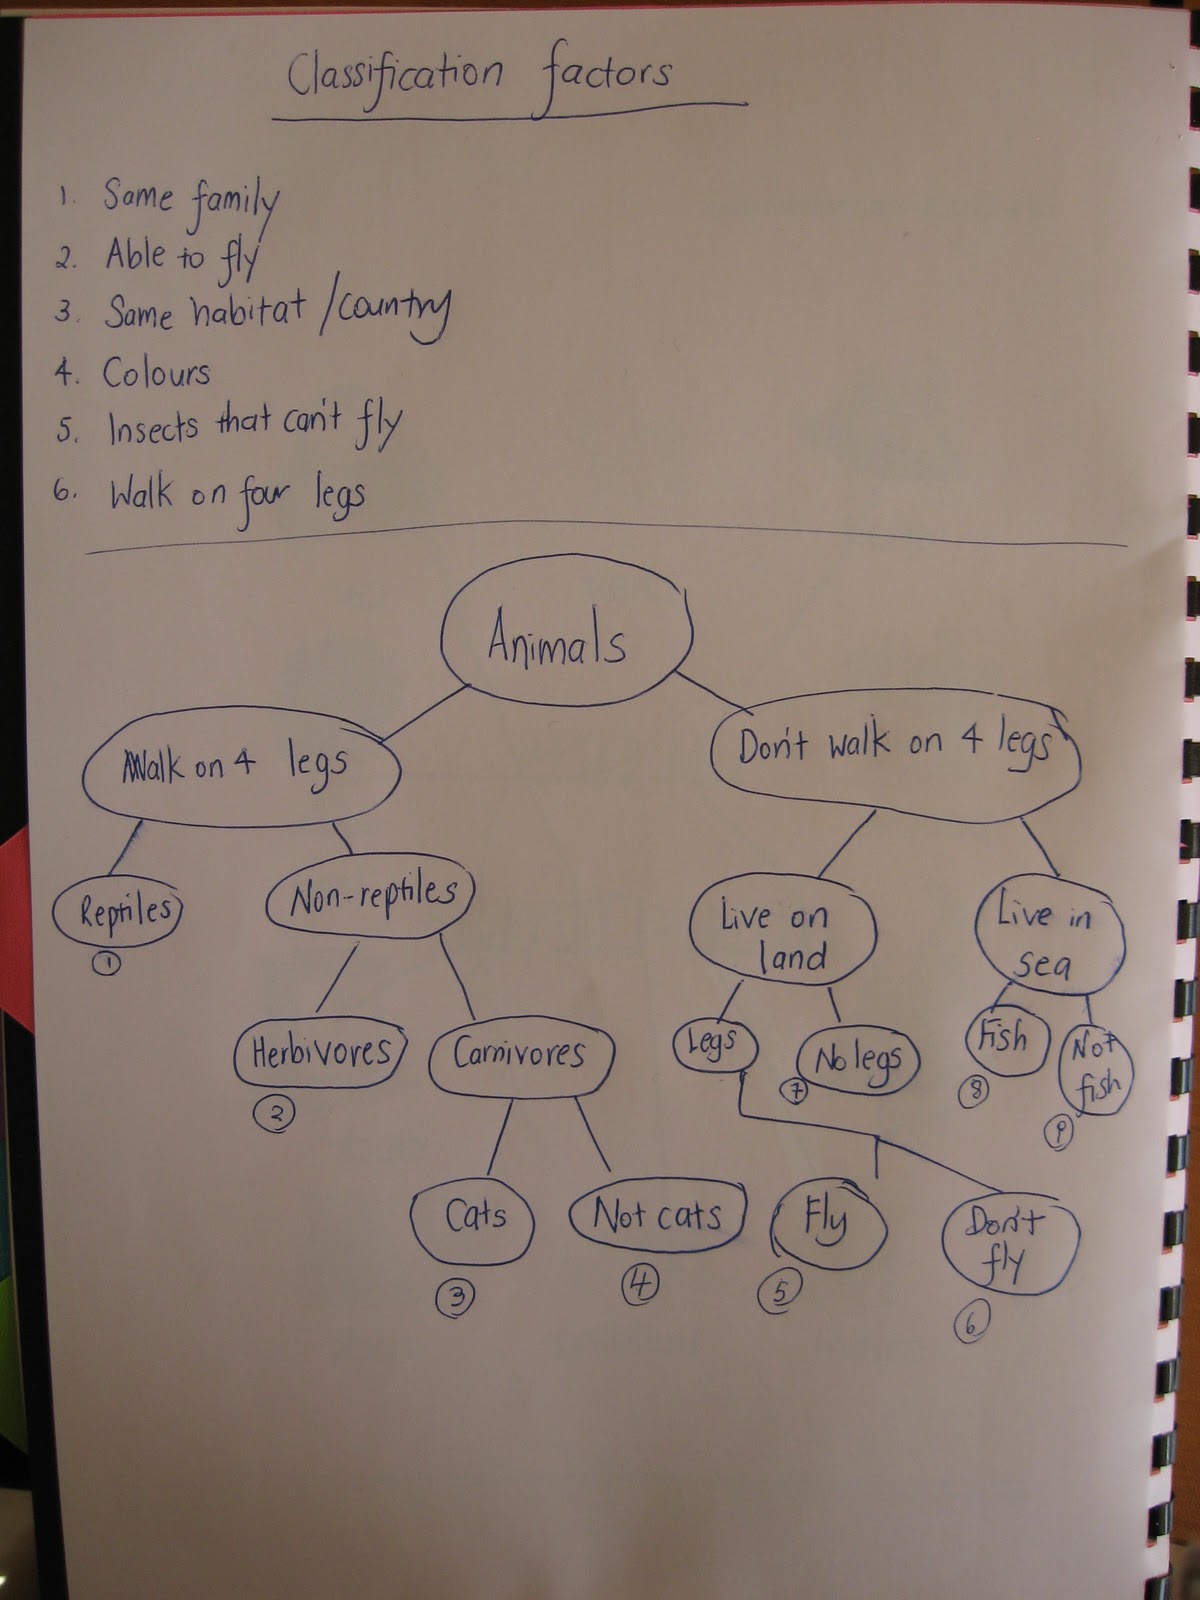 Classification factors
1. Same family
2. Able to fly
3. Same habitat / country
4. Colours
5. Insects that can't fly
6. Walk on four legs
Animals
Walk on 4 legs
Don't walk on 4 legs
Reptiles
1
Non-reptiles
Live on
land
Live in
sea
Herbivores
2
Carnivores
Legs
No legs
7
Fish
8
Not
fish
9
Cats
3
Not cats
4
Fly
5
Don't
fly
6